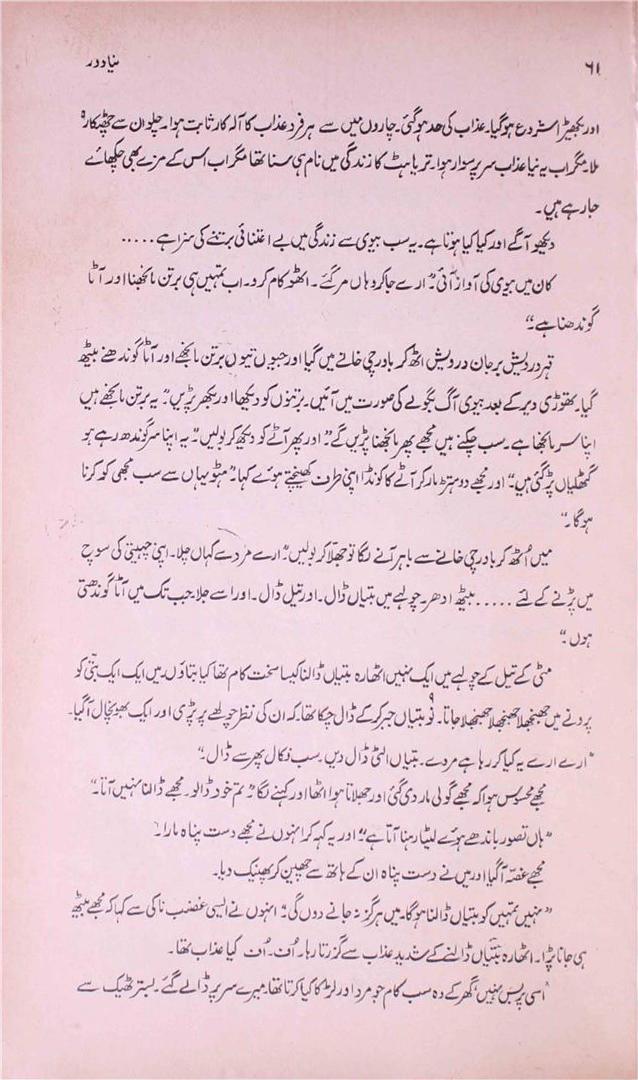 ۶۱
نیا دور
اور بکھیڑا شروع ہوگیا۔ عذاب کی حد ہوگئی۔ چاروں میں سے ہر فرد عذاب کا آلہ کار ثابت ہوا۔ چلو ان سے چھٹکارہ
ملا۔ مگر اب یہ نیا عذاب سر پر سوار ہوا۔ تریاہٹ کا زندگی میں نام ہی سنا تھا مگر اب اس کے مزے بھی چکھائے
جا رہے ہیں۔
دیکھو آگے اور کیا کیا ہوتا ہے۔ یہ سب بیوی سے زندگی میں بے اعتنائی برتنے کی سزا ہے.....
کان میں بیوی کی آواز آئی۔" ارے جا کر وہاں مر گئے۔ اٹھو کام کرو۔ اب تمہیں ہی برتن مانجھنا اور آٹا
گوندھنا ہے۔"
قہر درویش بر جان درویش اٹھ کر باورچی خانے میں گیا اور جیوں تیوں برتن مانجھے اور آٹا گوندھنے بیٹھ
گیا۔ تھوڑی دیر کے بعد بیوی آگ بگولے کی صورت میں آئیں۔ برتنوں کو دیکھا اور بکھر پڑیں۔" یہ برتن مانجھے ہیں
اپنا سر مانجھا ہے۔ سب چکنے ہیں مجھے پھر مانجھنا پڑیں گے۔" اور پھر آٹے کو دیکھ کر بولیں۔" یہ اپنا سر گوندھ رہے ہو
گٹھلیاں پڑ گئی ہیں۔" اور مجھے دو ہتڑ مار کر آٹے کا کونڈا اپنی طرف کھینچتے ہوئے کہا۔" ہٹو یہاں سے سب مجھی کو کرنا
ہوگا۔"
میں اُٹھ کر باورچی خانے سے باہر آنے لگا تو جھلا کر بولیں۔" ارے مردے کہاں چلا۔ اپنی چہیتی کی سوچ
میں پڑنے کے لئے ..... بیٹھ ادھر۔ چولہے میں بتیاں ڈال۔ اور تیل ڈال۔ اور اسے جلا، جب تک میں آٹا گوندھتی
ہوں۔"
مٹی کے تیل کے چولہے میں ایک نہیں اٹھارہ بتیاں ڈالنا کیسا سخت کام تھا کیا بتاؤں میں ایک ایک بتی کو
پرونے میں جھنجھلا جھنجھلا جاتا۔ نو بتیاں جبر کر کے ڈال چکا تھا کہ ان کی نظر چولھے پر پڑی اور ایک بھونچال آگیا۔
"ارے ارے یہ کیا کر رہا ہے مردے۔ بتیاں الٹی ڈال دیں۔ سب نکال پھر سے ڈال۔"
مجھے محسوس ہوا کہ مجھے گولی مار دی گئی اور جھلاتا ہوا اٹھا اور کہنے لگا۔" تم خود ڈالو۔ مجھے ڈالنا نہیں آتا۔"
"ہاں تصور باندھے ہوئے لیٹا رہنا آتا ہے۔" اور یہ کہہ کر انہوں نے مجھے دست پناہ مارا۔
مجھے غصّہ آگیا اور میں نے دست پناہ ان کے ہاتھ سے چھین کر پھینک دیا۔
"نہیں تمہیں کو بتیاں ڈالنا ہوگا۔ میں ہرگز نہ جانے دوں گی۔" انہوں نے ایسی غضب ناکی سے کہا کہ مجھے بیٹھ
ہی جانا پڑا۔ اٹھارہ بتیاں ڈالنے کے شدید عذاب سے گزرتا رہا۔ اُف۔ اُف کیا عذاب تھا۔
اسی پر بس نہیں گھر کے وہ سب کام جو مرد اور لڑکا کیا کرتا تھا۔ میرے سر پر ڈالے گئے۔ بستر ٹھیک سے